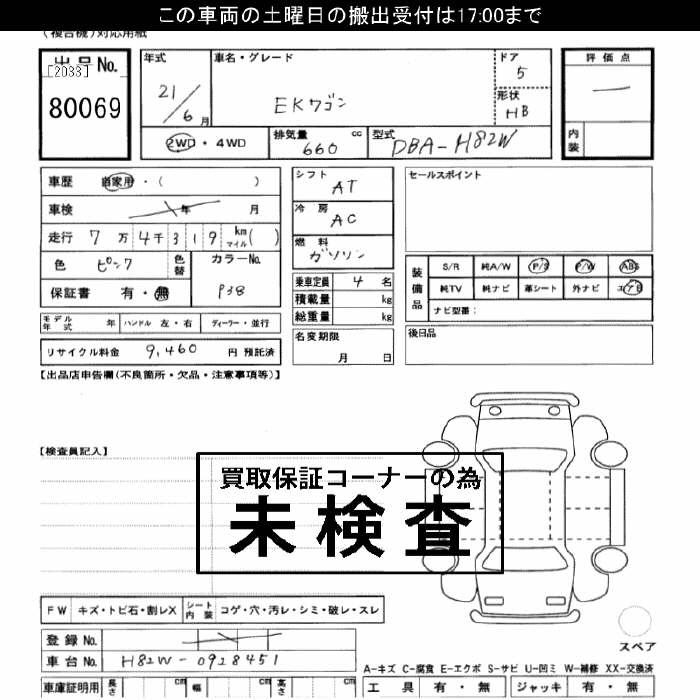 この車両の土曜日の搬出受付は17:00まで
(複合機)対応用紙
出品No.
[2033]
80069
年式
21/6月
車名・グレード
EKワゴン
ドア
5
形状
HB
評価点
ー
内装
2WD・4WD
排気量 660 cc
型式 DBA-H82W
車歴 自家用・( )
車検 年 月
走行 7万4千319 km マイル( )
色 ピンク 色替
カラーNo. P38
保証書 有・無
シフト AT
冷房 AC
燃料 ガソリン
乗車定員 4 名
積載量 kg
総重量 kg
セールスポイント
装備品
S/R 純A/W P/S P/W ABS
純TV 純ナビ 革シート 外ナビ エアB
ナビ型番:
モデル年式 年 ハンドル 左・右 ディーラー・並行
リサイクル料金 9,460 円 預託済
名変期限
月 日
後日品
【出品店申告欄(不良箇所・欠品・注意事項等)】
【検査員記入】
買取保証コーナーの為
未検査
FW キズ・トビ石・割レX シート内装 コゲ・穴・汚レ・シミ・破レ・スレ
登録No.
車台No. H82W-0928451
車庫証明用 長さ cm 幅 cm 高さ cm
スペア
A-キズ C-腐食 E-エクボ S-サビ U-凹ミ W-補修 XX-交換済
工具 有・無 ジャッキ 有・無